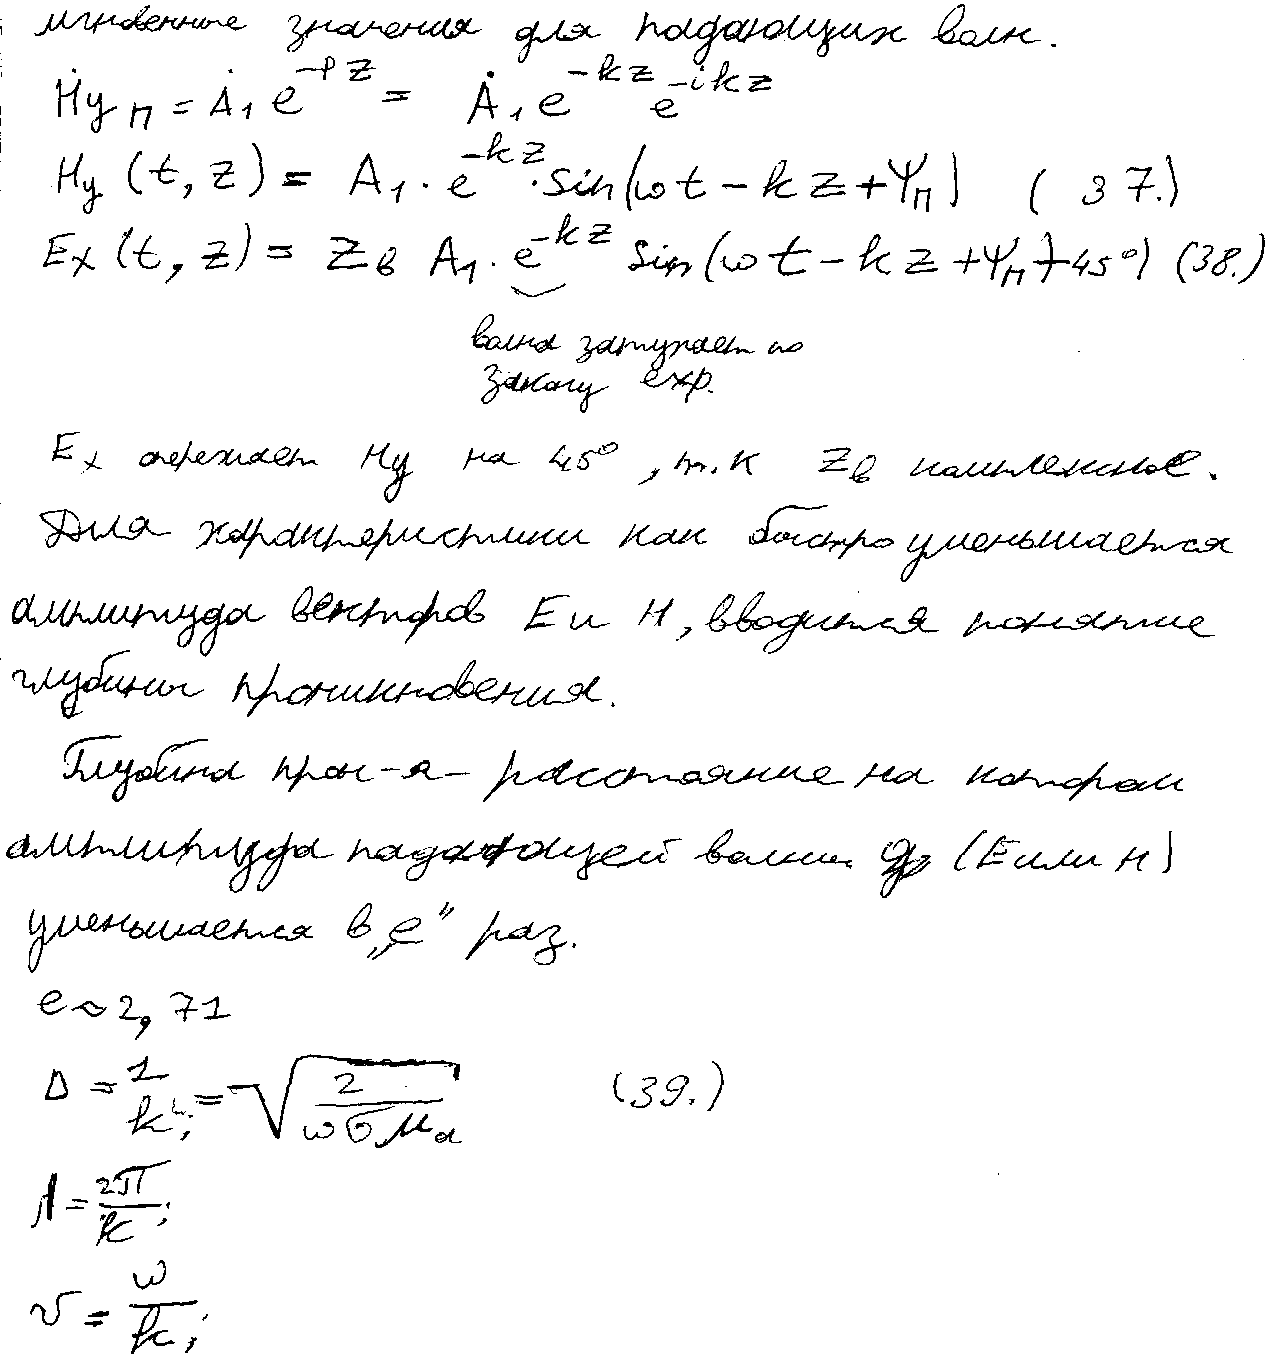 мгновенные значения для падающих волн.
Ḣyп = Ȧ₁e^(-pz) = Ȧ₁e^(-kz) e^(-ikz)
Hy(t,z) = A₁·e^(-kz)·sin(ωt-kz+Ψп) (37.)
Ex(t,z) = Zв A₁·e^(-kz) sin(ωt-kz+Ψп+45°) (38.)
волна затухает по
закону exp.
Ex опережает Hy на 45°, т.к Zв комплексное.
Для характеристики как быстро уменьшается
амплитуда векторов E и H, вводится понятие
глубины проникновения.
Глубина прон-я - расстояние на котором
амплитуда падающей волны (E или H)
уменьшается в „e" раз.
e ~ 2,71
Δ = 1/k; = √(2/(ωσμa)) (39.)
Λ = 2π/k;
v = ω/k;